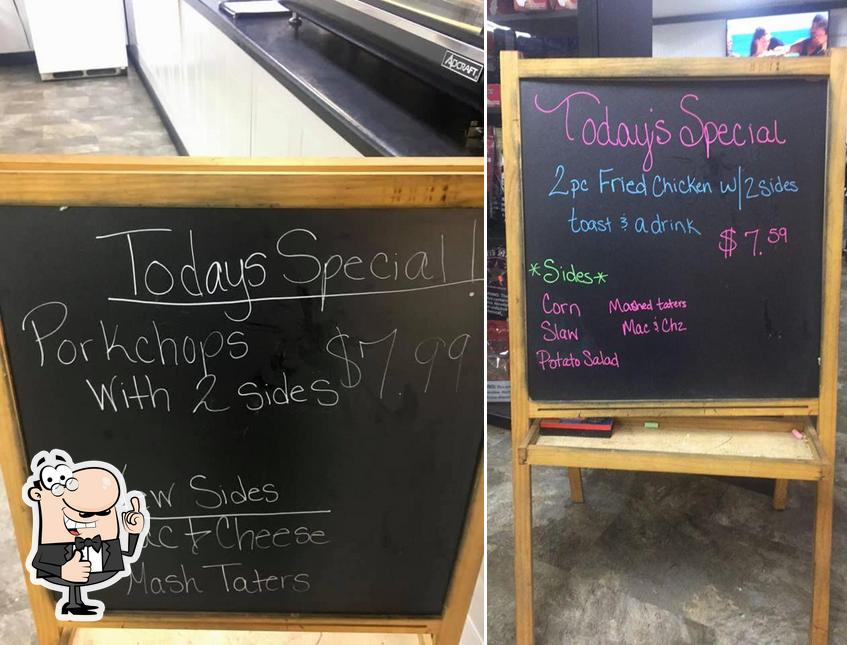 ADCRAFT
Todays Special!
Porkchops $7.99
With 2 sides
Sides
Cheese
Mash Taters
Today's Special
2pc Fried Chicken w/2sides
toast & a drink $7.59
*Sides*
Corn Mashed taters
Slaw Mac & Chz
Potato Salad